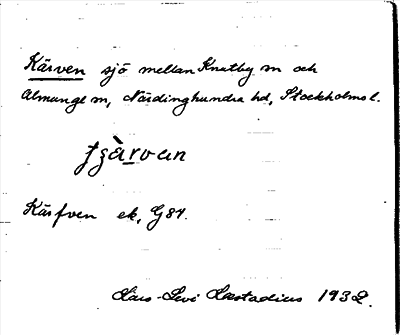 Kärven sjö mellan Knutby sn och
Almunge sn, Närdinghundra hd, Stockholms l.
Kärfven ek, G 84.
Lars-Levi Læstadius 1932.